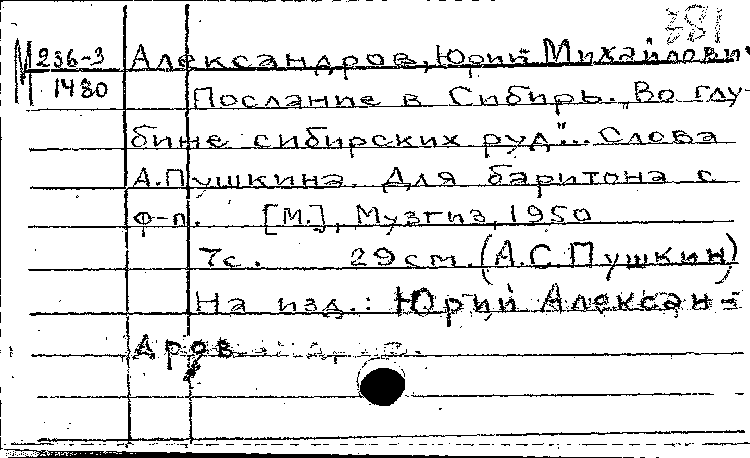 381
М 236-3
1480
Александров, Юрий Михайлови
Послание в Сибирь. „Во глу-
бине сибирских руд"... Слова
А.Пушкина. Для баритона с
ф-п. [М.], Музгиз, 1950
7с. 29см. (А.С.Пушкин)
На изд.: Юрий Алексан-
дров.